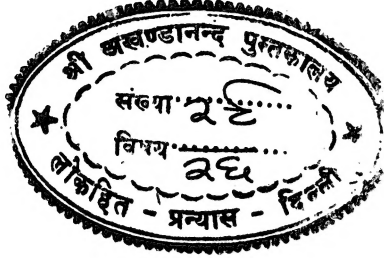 श्री अखण्डानन्द पुस्तकालय
संख्या २९
विषय २६
लोकहित - प्रन्यास - दिल्ली